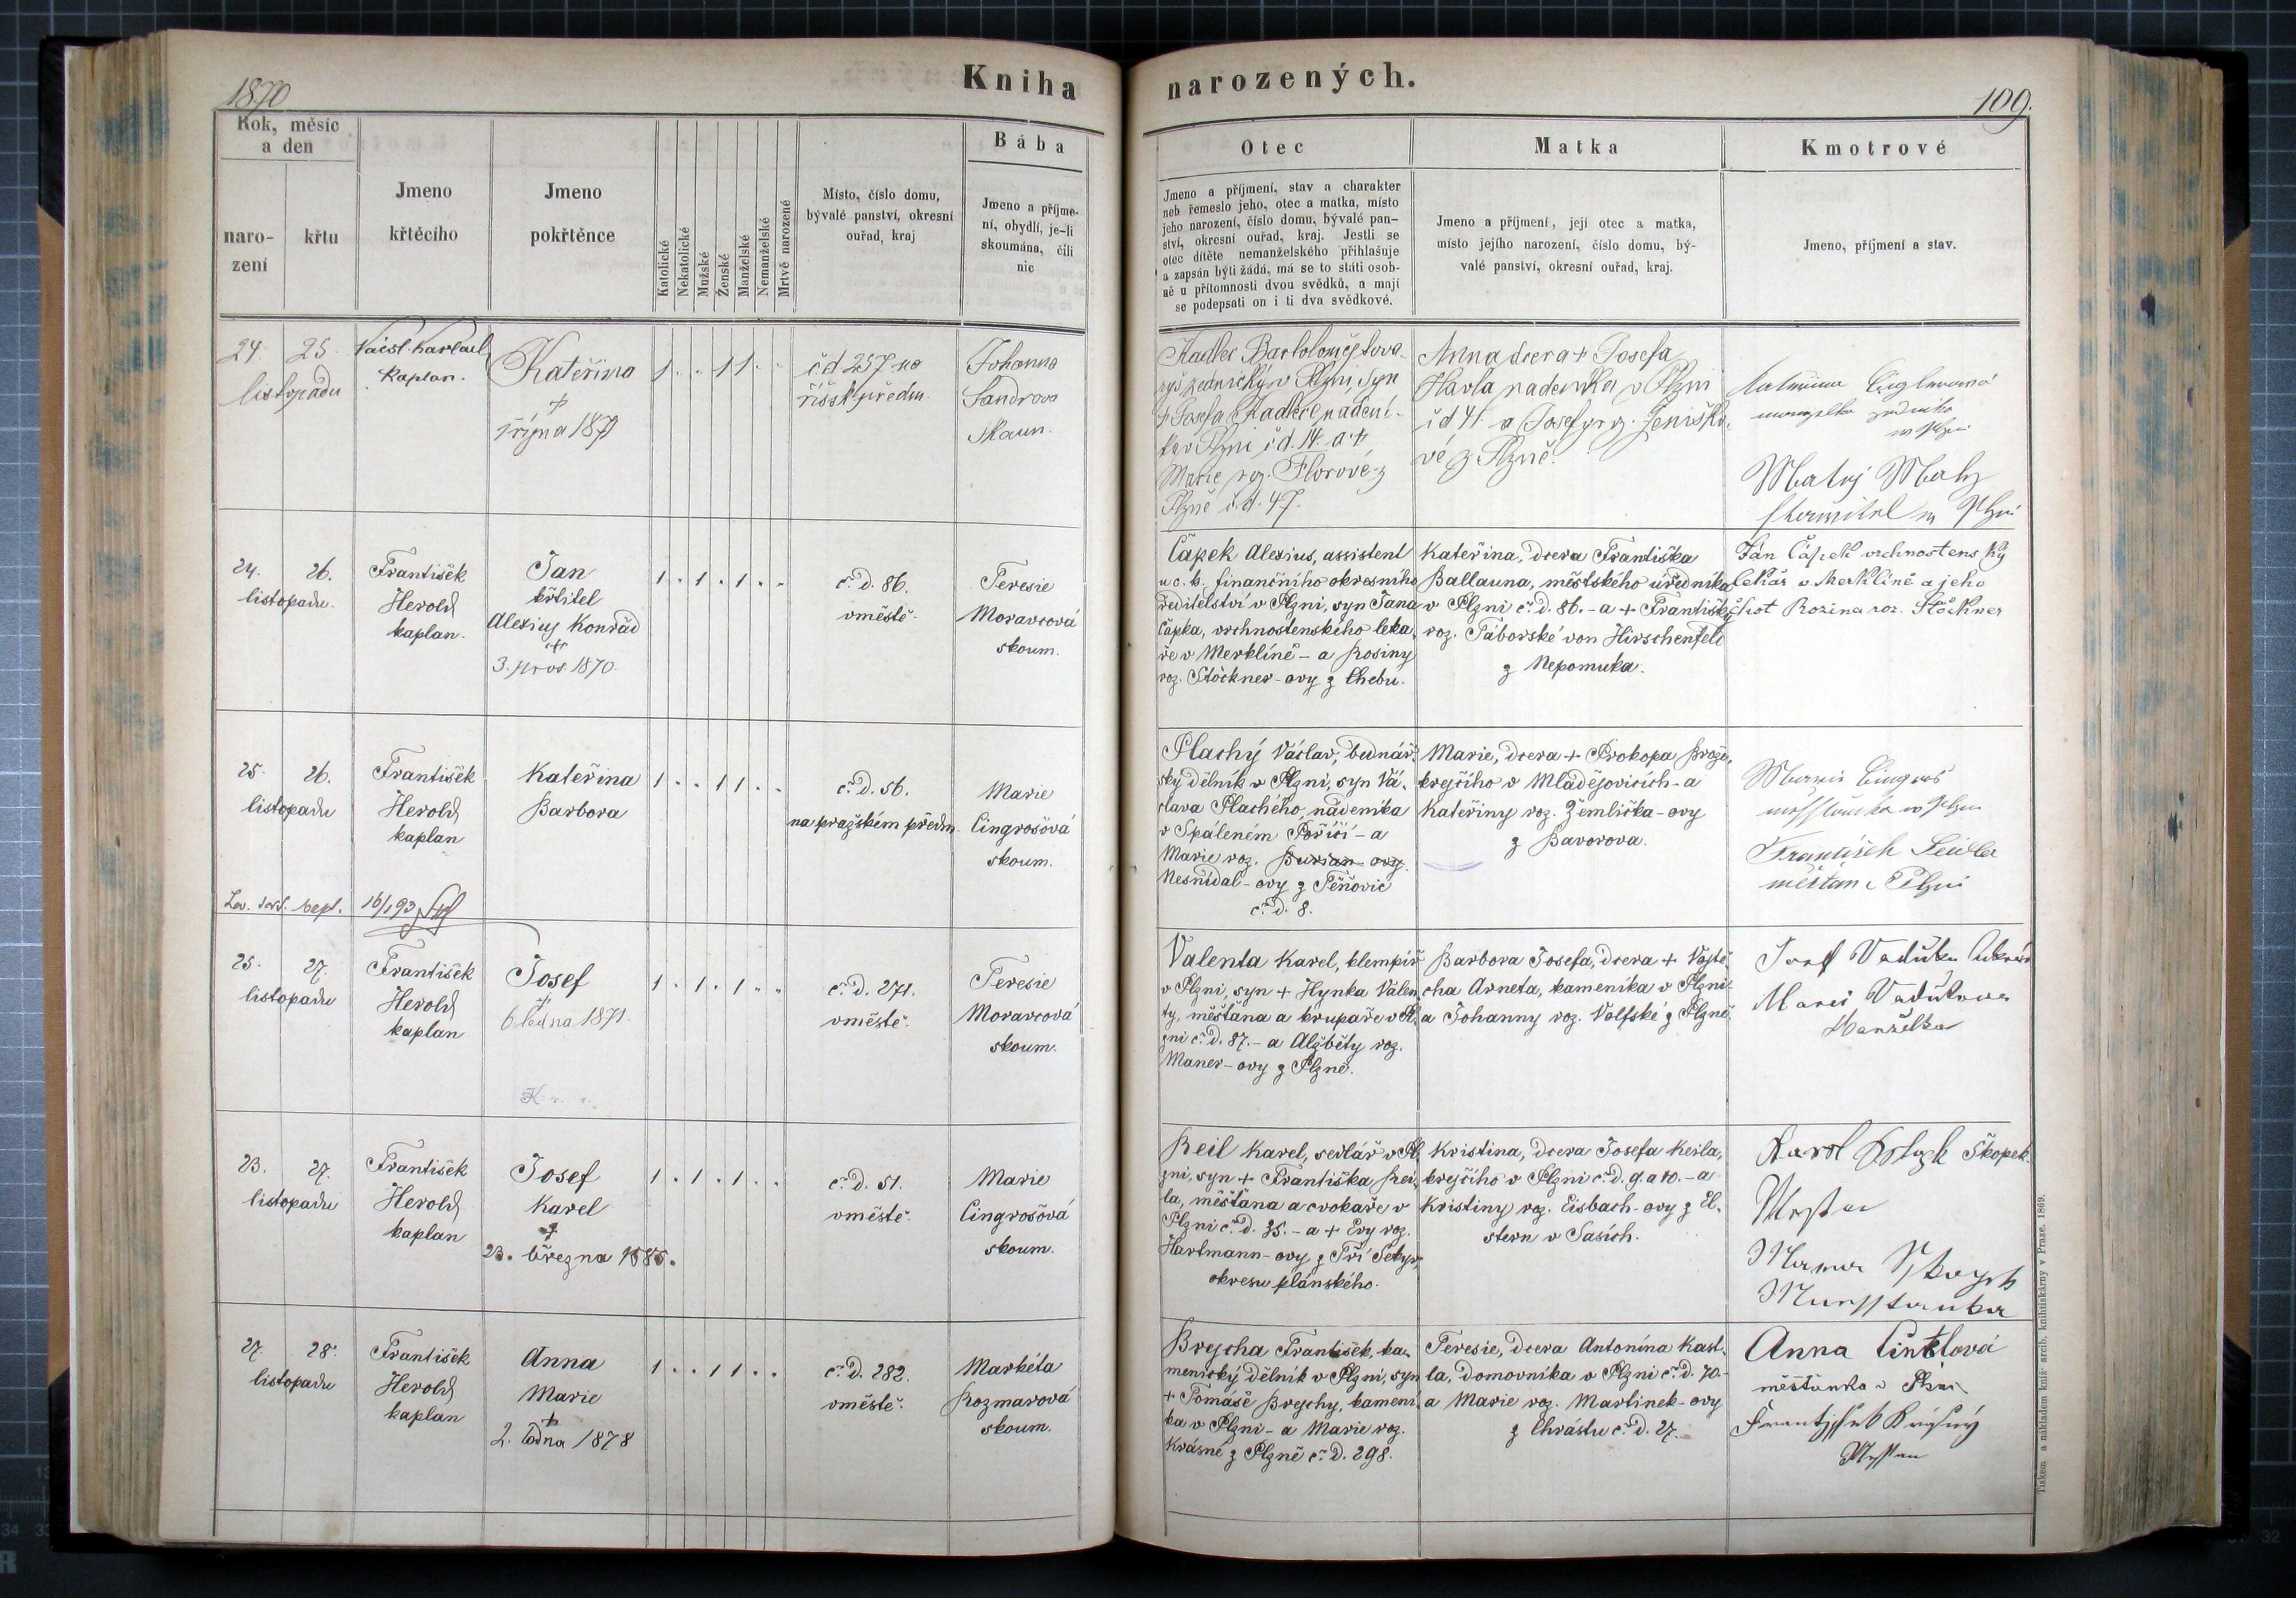 1870
Kniha narozených.
109.
Rok, měsíc
a den
naro-
zení
křtu
Jmeno
křtěcího
Jmeno
pokřtěnce
Katolické
Nekatolické
Mužské
Ženské
Manželské
Nemanželské
Mrtvě narozené
Místo, číslo domu,
bývalé panství, okresní
ouřad, kraj
Bába
Jmeno a příjme-
ní, obydlí, je-li
skoumána, čili
nic
Otec
Jmeno a příjmení, stav a charakter
neb řemeslo jeho, otec a matka, místo
jeho narození, číslo domu, bývalé pan-
ství, okresní ouřad, kraj. Jestli se
otec dítěte nemanželského přihlašuje
a zapsán býti žádá, má se to státi osob-
ně u přítomnosti dvou svědků, a mají
se podepsati on i ti dva svědkové.
Matka
Jmeno a příjmení, její otec a matka,
místo jejího narození, číslo domu, bý-
valé panství, okresní ouřad, kraj.
Kmotrové
Jmeno, příjmení a stav.
24. 25.
listopadu
kaplan.
Kateřina
+
října 1871
1 . . 1 1 . .
čd 257 na
říšsk předm.
Johanna
Sandrova
skoum.
Kadlec Bartoloměj tova-
ryš zednický v Plzni, syn
+ Josefa Kadlece nadení-
ka v Plzni čd. 14. a +
Marie roz. Florové z
Plzně čd. 47.
Anna dcera + Josefa
Havla nadeníka v Plzni
čd 41. a Josefy roz. Jeniško-
vé z Plzně.
Matej Maly
v Plzni
24. 26.
listopadu.
František
Herold
kaplan.
Jan
křtitel
Alexius Konrád
+
3. pros. 1870.
1 . 1 . 1 . .
č. D. 86.
vměstě.
Teresie
Moravcová
skoum.
Čápek Alexius, assistent
u c. k. finančního okresního
ředitelství v Plzni, syn Jana
Čápka, vrchnostenského léka-
ře v Merklíně - a Rosiny
roz. Stöckner-ovy z Chebu.
Kateřina, dcera Františka
Ballauna, městského úředníka
v Plzni č. D. 86. - a + Františky
roz. Táborské von Hirschenfeld
z Nepomuka.
Ján Čápek vrchnostenský
lekár v Merklíně a jeho
chot Rozina roz. Stöckner
25. 26.
listopadu
František
Herold
kaplan
Kateřina
Barbora
1 . . 1 1 . .
č. D. 56.
na pražském předm.
Marie
Cingrošová
skoum.
Plachý Václav, bednář-
ský dělník v Plzni, syn Vá-
clava Plachého, nádeníka
v Spáleném Poříčí - a
Marie roz. Burian-ovy
Nesnídal-ovy z Těňovic
č. D. 8.
Marie, dcera + Prokopa Brože,
krejčího v Mladějovicích - a
Kateřiny roz. Žemlička-ovy
z Bavorova.
František Seidler
měštan v Plzni
16/193
25. 27.
listopadu
František
Herold
kaplan
Josef
+
6 ledna 1871.
1 . 1 . 1 . .
č. D. 271.
vměstě.
Teresie
Moravcová
skoum.
Valenta Karel, klempíř
v Plzni, syn + Hynka Valen-
ty, měšťana a krupaře v Pl-
zni č. D. 87. - a Alžběty roz.
Maner-ovy z Plzně.
Barbora Josefa, dcera + Vojtě-
cha Arneta, kameníka v Plzni
a Johanny roz. Volfské z Plzně.
Manželka
23. 27.
listopadu
František
Herold
kaplan
Josef
Karel
+
23. března 1885.
1 . 1 . 1 . .
č. D. 51.
vměstě.
Marie
Cingrošová
skoum.
Beil Karel, sedlář v Pl-
zni, syn + Františka Bei-
la, měšťana a cvokaře v
Plzni č. D. 35. - a + Evy roz.
Hartmann-ovy z Tří Sekyr,
okresu plánského.
Kristina, dcera Josefa Keila,
krejčího v Plzni č. D. 9. a 10. - a
Kristiny roz. Eisbach-ovy z El-
stern v Sasích.
27. 28.
listopadu
František
Herold
kaplan
Anna
Marie
+
2. ledna 1878
1 . . 1 1 . .
č. D. 282.
vměstě.
Markéta
Rozmarová
skoum.
Brejcha František, ka-
menický dělník v Plzni, syn
+ Tomáše Brejchy, kamení-
ka v Plzni - a Marie roz.
Krásné z Plzně č. D. 298.
Teresie, dcera Antonína Kast-
la, domovníka v Plzni č. D. 70. -
a Marie roz. Martinek-ovy
z Chrástu č. D. 27.
Anna
měšťanka v Plzni
Tiskem a nákladem kníž. arcib. knihtiskárny v Praze. 1869.